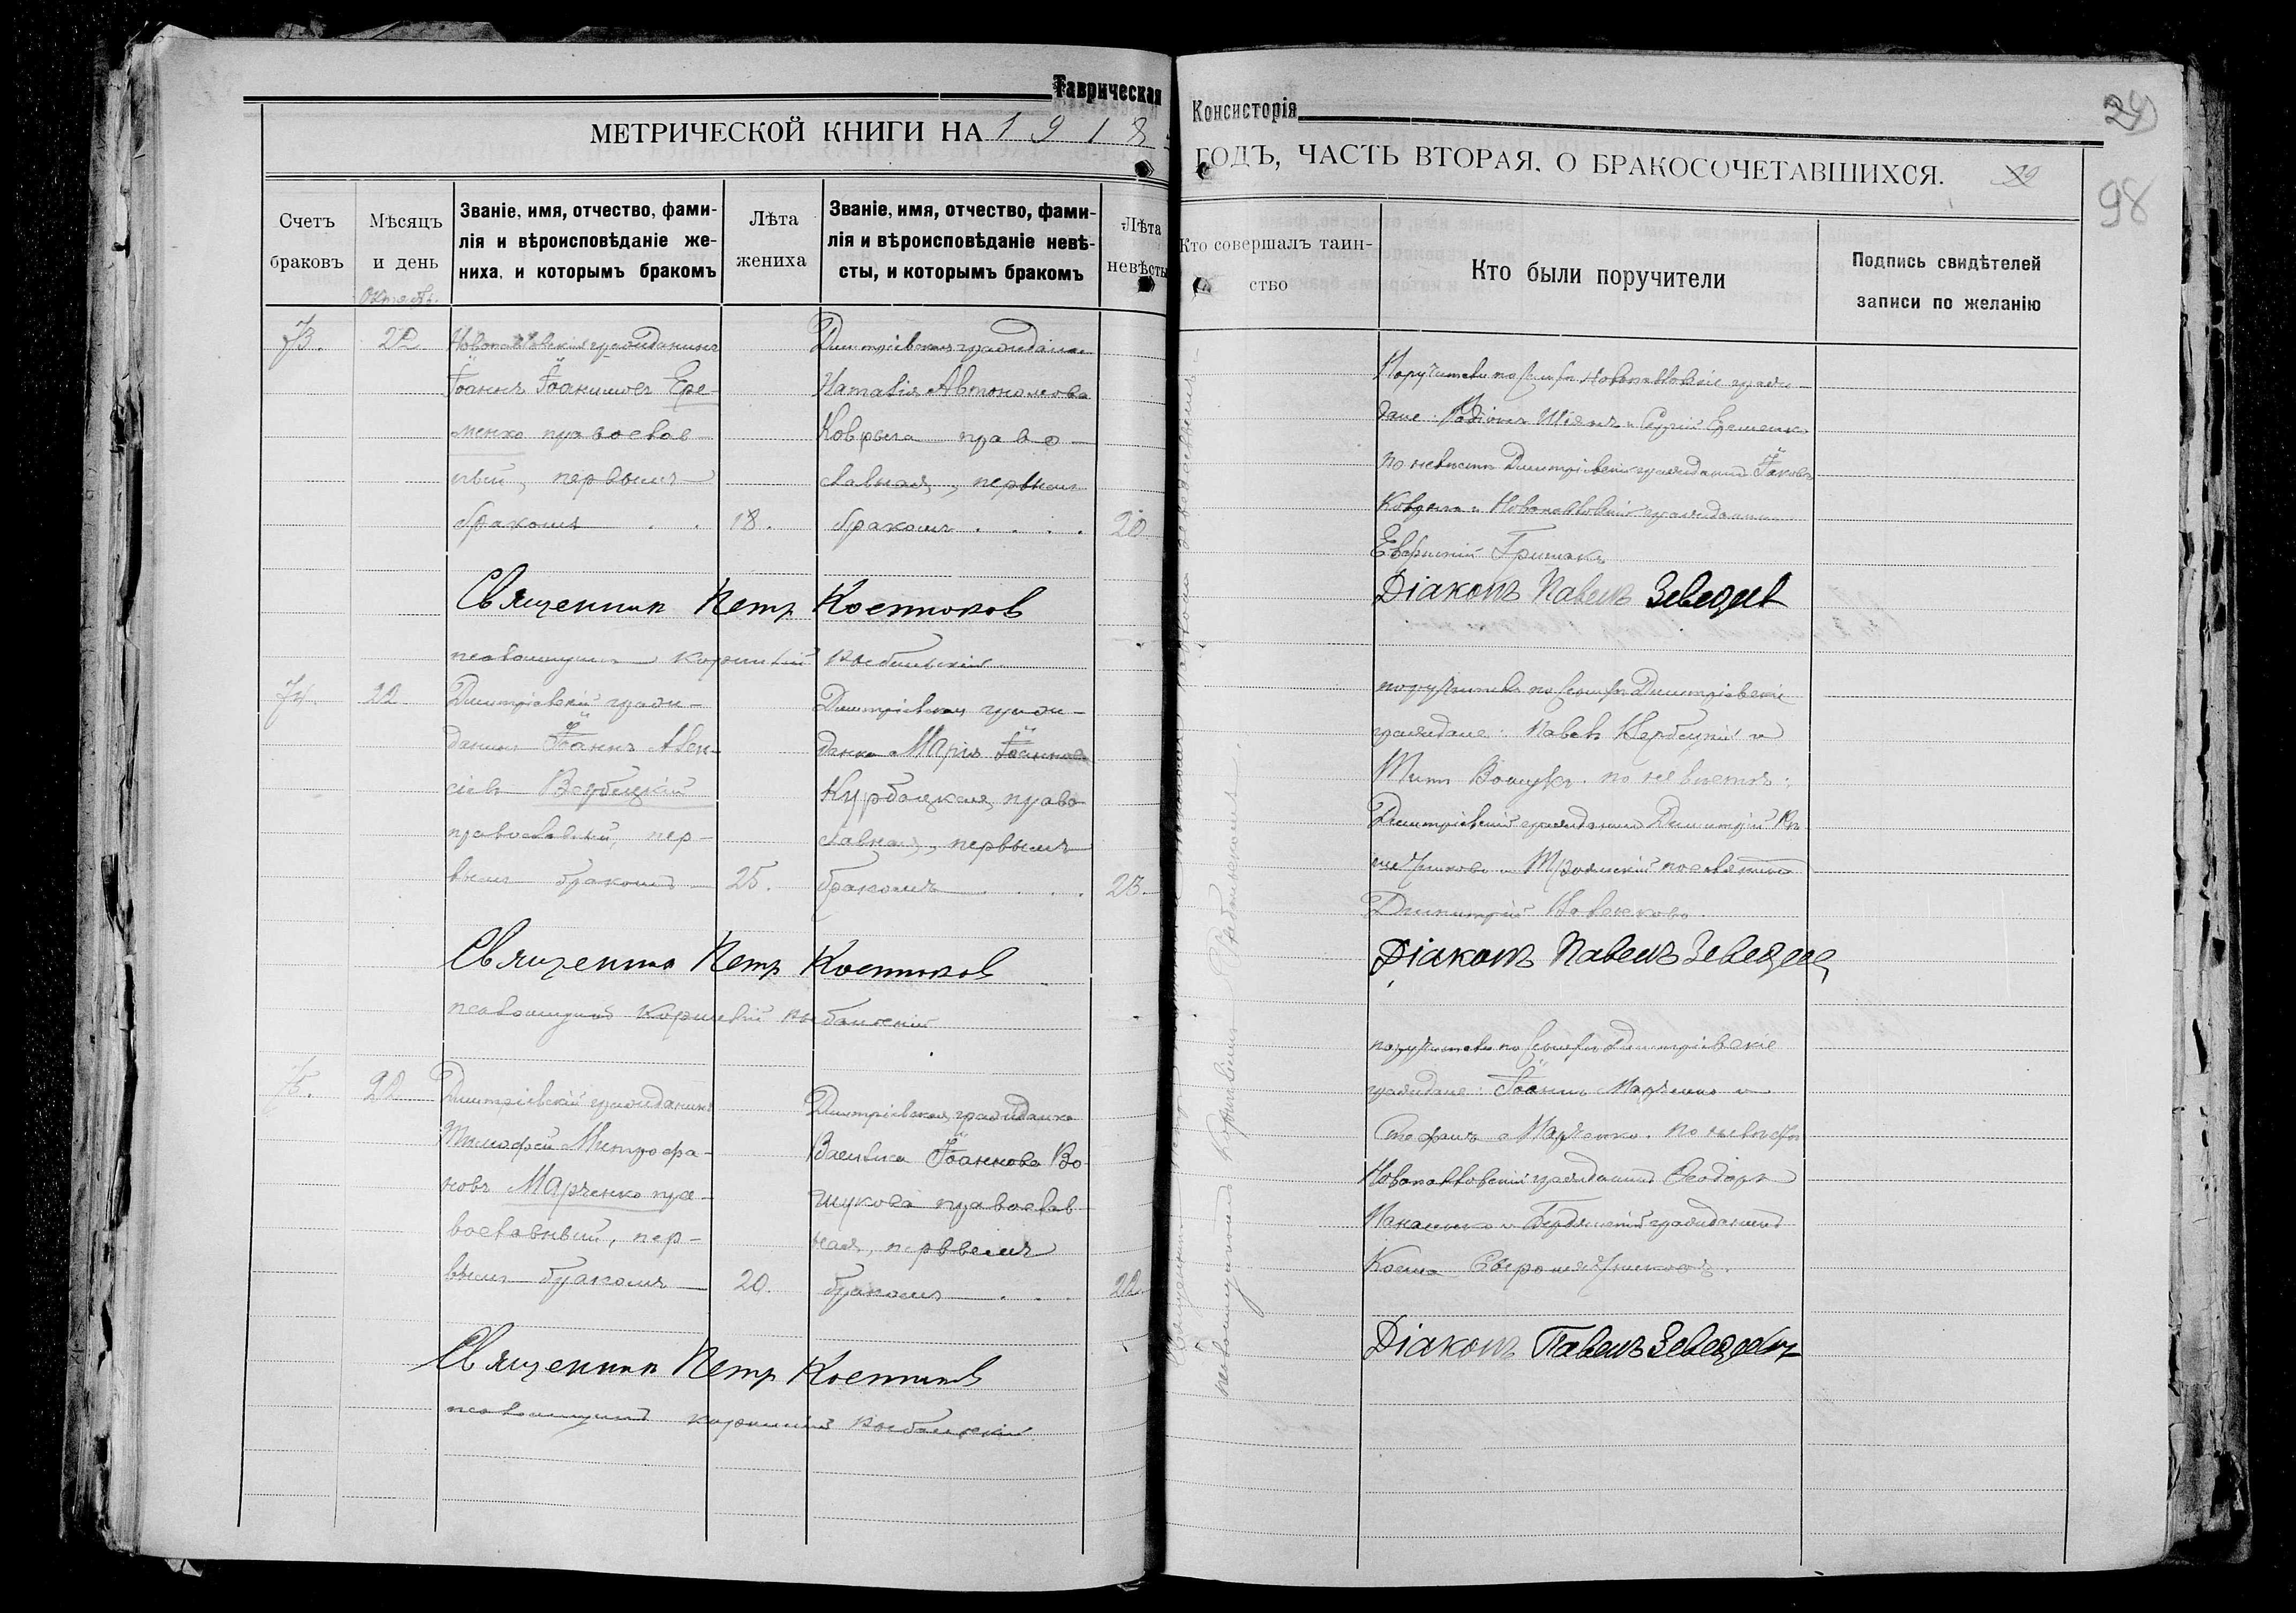 Таврическая Консисторія
МЕТРИЧЕСКОЙ КНИГИ НА 1918 ГОДЪ, ЧАСТЬ ВТОРАЯ, О БРАКОСОЧЕТАВШИХСЯ.
98
Счетъ браковъ
Мѣсяцъ и день
Званіе, имя, отчество, фами-
лія и вѣроисповѣданіе же-
ниха, и которымъ бракомъ
Лѣта жениха
Званіе, имя, отчество, фами-
лія и вѣроисповѣданіе невѣ-
сты, и которымъ бракомъ
Лѣта невѣсты
Кто совершалъ таин-
ство
Кто были поручители
Подпись свидѣтелей
записи по желанію
Октябр.
73.
22
Новопавловскій гражданинъ
Іоаннъ Іоакимовъ Ере-
менко православ-
ный, первымъ
бракомъ 18.
Димтріевская гражданка
Наталія Автономова
Коврыга право-
славная, первымъ
бракомъ 20
Поручители по женихѣ Новопавловскіе граж-
дане: Родіонъ Шіянъ и Сергій Еременко
по невѣстѣ Димтріевскій гражданинъ Іаковъ
Коврыга и Новопавловскій гражданинъ
Евфимій Грицакъ
Священник Петр Костюков
Діаконъ Павелъ Зеведеев
псаломщикъ Корнилій
74.
22
Димтріевскій граж-
данинъ Іоаннъ Алек-
сіевъ Вербицкій
православный, пер-
вымъ бракомъ 25.
Димтріевская граж-
данка Марія Іоаннова
Курбацкая, право
славная, первымъ
бракомъ 23.
поручители по женихѣ Димтріевскіе
граждане: Павелъ и
Титъ Вощукъ. по невѣстѣ:
Димтріевскій гражданинъ Димитрій
Димитрій
Священник Петр Костюков
Діаконъ Павелъ Зеведеев
псаломщикъ Корнилій
75.
22
Димтріевскій гражданинъ
Тимофей Митрофа-
новъ Марченко пра-
вославный, пер-
вымъ бракомъ 20.
Димтріевская гражданка
Василиса Іоаннова Во-
щукова православ-
ная, первымъ
бракомъ 22.
поручители по женихѣ Димтріевскіе
граждане: Іоаннъ Марченко и
Стефанъ Марченко. по невѣстѣ
Новопавловскій гражданинъ Феодоръ
и Бердянскій гражданинъ
Косма
Священник Петр Костюков
Діаконъ Павелъ Зеведеевъ
псаломщикъ Корнилій